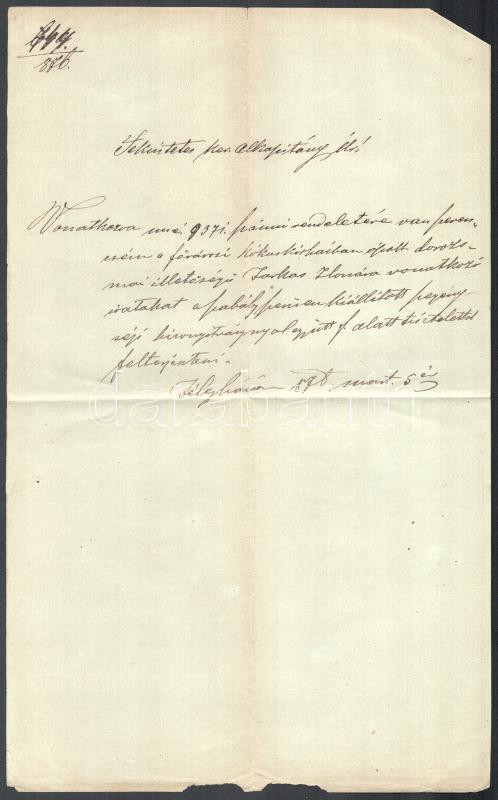 876.
Tekintetes ker. alkapitány Úr!
Vonatkozva 937 i. számú rendeletére van szeren-
csém a fővárosi kórházban ápolt dorozs-
mai illetőségű Farkas Ilonára vonatkozó
iratokat a szabályszerűen kiállított szegény-
ségi bizonyítványnyal együtt ·/. alatt tisztelettel
felterjeszteni.
Félegyházán 876 márt. 5 én
darabanth